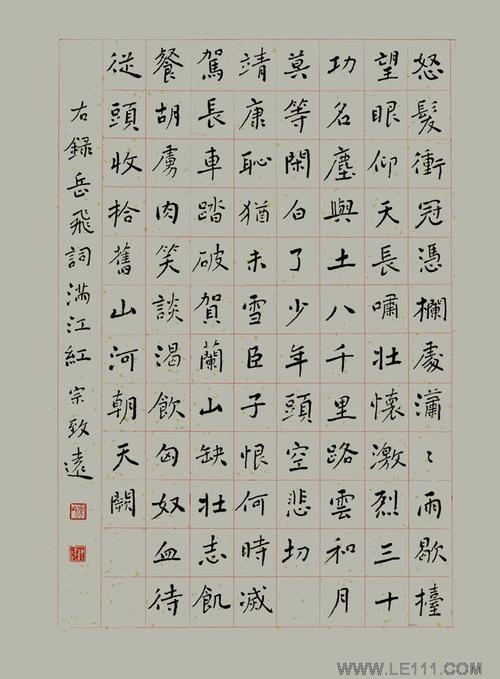 怒髮衝冠憑欄處瀟〻雨歇擡
望眼仰天長嘯壯懷激烈三十
功名塵與土八千里路雲和月
莫等閑白了少年頭空悲切
靖康恥猶未雪臣子恨何時滅
駕長車踏破賀蘭山缺壯志飢
餐胡虜肉笑談渴飲匈奴血待
従頭收拾舊山河朝天闕
右録岳飛詞满江紅 宗致遠
WWW.LE111.COM